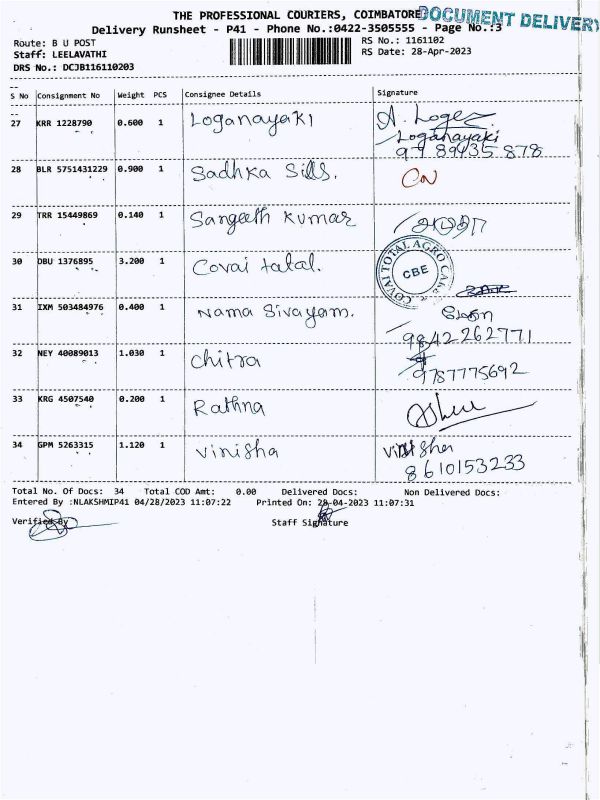 THE PROFESSIONAL COURIERS, COIMBATORE
DOCUMENT DELIVERY
Delivery Runsheet - P41 - Phone No.:0422-3505555 - Page No.:3
Route: B U POST
RS No.: 1161102
Staff: LEELAVATHI
RS Date: 28-Apr-2023
DRS No.: DCJB116110203
S No Consignment No Weight PCS Consignee Details Signature
27 KRR 1228790 0.600 1 Loganayaki A. Loge
Loganayaki
9789435878
28 BLR 5751431229 0.900 1 Sadhka Sills. CN
29 TRR 15449869 0.140 1 Sangeeth Kumar
30 DBU 1376895 3.200 1 Covai total.
COVAI TOTAL AGRO CARE
CBE
31 IXM 503484976 0.400 1 Nama Sivayam.
9842262771
32 NEY 40089013 1.030 1 Chitra
9787775692
33 KRG 4507540 0.200 1 Rathna
34 GPM 5263315 1.120 1 Vinisha Vinisha
8610153233
Total No. Of Docs: 34 Total COD Amt: 0.00 Delivered Docs: Non Delivered Docs:
Entered By :NLAKSHMIP41 04/28/2023 11:07:22 Printed On: 28-04-2023 11:07:31
Verified By
Staff Signature